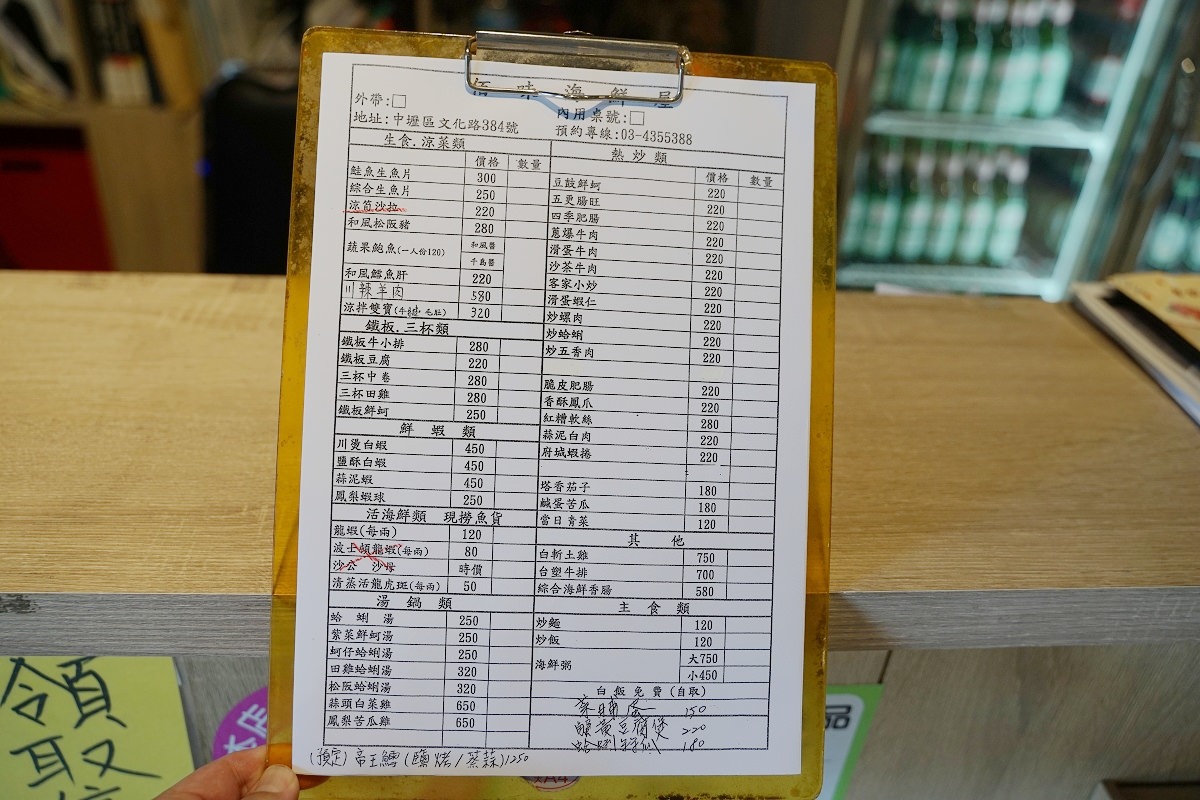 佰味海鮮屋
外帶:□ 內用桌號:□
地址:中壢區文化路384號 預約專線:03-4355388
生食.涼菜類
價格 數量
鮭魚生魚片 300
綜合生魚片 250
涼筍沙拉 220
和風松阪豬 280
蔬果鮑魚(一人份120) 和風醬
千島醬
和風鱈魚肝 220
川辣羊肉 580
涼拌雙寶(牛腱.毛肚) 320
鐵板.三杯類
鐵板牛小排 280
鐵板豆腐 220
三杯中卷 280
三杯田雞 280
鐵板鮮蚵 250
鮮蝦類
川燙白蝦 450
鹽酥白蝦 450
蒜泥蝦 450
鳳梨蝦球 250
活海鮮類 現撈魚貨
龍蝦(每兩) 120
波士頓龍蝦(每兩) 80
沙公 沙母 時價
清蒸活龍虎斑(每兩) 50
湯鍋類
蛤蜊湯 250
紫菜鮮蚵湯 250
蚵仔蛤蜊湯 250
田雞蛤蜊湯 320
松阪蛤蜊湯 320
蒜頭白菜雞 650
鳳梨苦瓜雞 650
熱炒類
價格 數量
豆鼓鮮蚵 220
五更腸旺 220
四季肥腸 220
蔥爆牛肉 220
滑蛋牛肉 220
沙茶牛肉 220
客家小炒 220
滑蛋蝦仁 220
炒螺肉 220
炒蛤蜊 220
炒五香肉 220
脆皮肥腸 220
香酥鳳爪 220
紅糟軟絲 280
蒜泥白肉 220
府城蝦捲 220
塔香茄子 180
鹹蛋苦瓜 180
當日青菜 120
其他
白斬土雞 750
台塑牛排 700
綜合海鮮香腸 580
主食類
炒麵 120
炒飯 120
海鮮粥 大750
小450
白飯免費(自取)
菜脯蛋 150
鹹黃豆腐煲 220
蛤蜊絲瓜 180
(預定)帝王鱈(鹽烤/蒸蒜)1250
領
取
本店
品